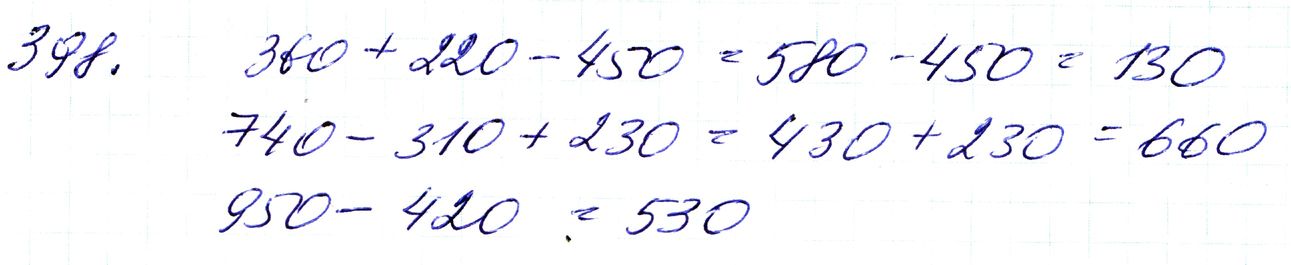 398. 360 + 220 - 450 = 580 - 450 = 130
740 - 310 + 230 = 430 + 230 = 660
950 - 420 = 530